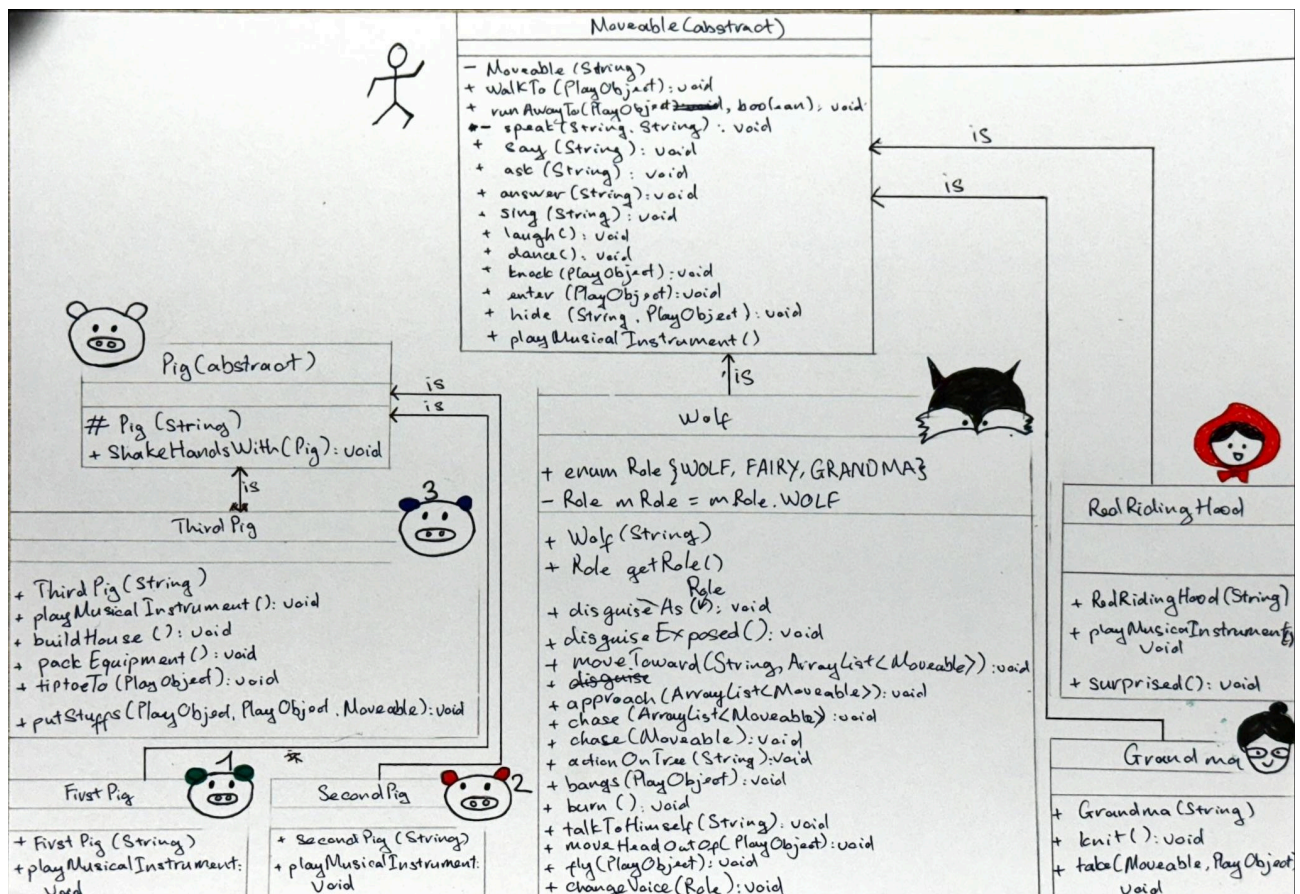 Moveable (abstract)
- Moveable (String)
+ walkTo (PlayObject): void
+ runAwayTo(PlayObject, boolean): void
- speak (String, String): void
+ say (String): void
+ ask (String): void
+ answer (String): void
+ sing (String): void
+ laugh(): void
+ dance(): void
+ knock (PlayObject): void
+ enter (PlayObject): void
+ hide (String, PlayObject): void
+ playMusicalInstrument ()
is
is
is
Pig (abstract)
# Pig (String)
+ ShakeHandsWith (Pig): void
is
is
is
3
ThirdPig
+ ThirdPig (String)
+ playMusicalInstrument (): void
+ buildHouse (): void
+ packEquipment (): void
+ tiptoeTo (PlayObject): void
+ putStuffs (PlayObject, PlayObject, Moveable): void
1
FirstPig
+ FirstPig (String)
+ playMusicalInstrument:
void
2
SecondPig
+ SecondPig (String)
+ playMusicalInstrument:
void
Wolf
+ enum Role {WOLF, FAIRY, GRANDMA}
- Role mRole = mRole.WOLF
+ Wolf (String)
+ Role getRole()
Role
+ disguiseAs (): void
+ disguiseExposed(): void
+ moveToward (String, ArrayList<Moveable>): void
+ disguise
+ approach (ArrayList<Moveable>): void
+ chase (ArrayList<Moveable>): void
+ chase (Moveable): void
+ actionOnTree (String): void
+ bangs (PlayObject): void
+ burn (): void
+ talkToHimself (String): void
+ moveHeadOutOf (PlayObject): void
+ fly (PlayObject): void
+ changeVoice (Role): void
RedRidingHood
+ RedRidingHood (String)
+ playMusicalInstrument():
void
+ surprised (): void
Grandma
+ Grandma (String)
+ knit (): void
+ take (Moveable, PlayObject)
void